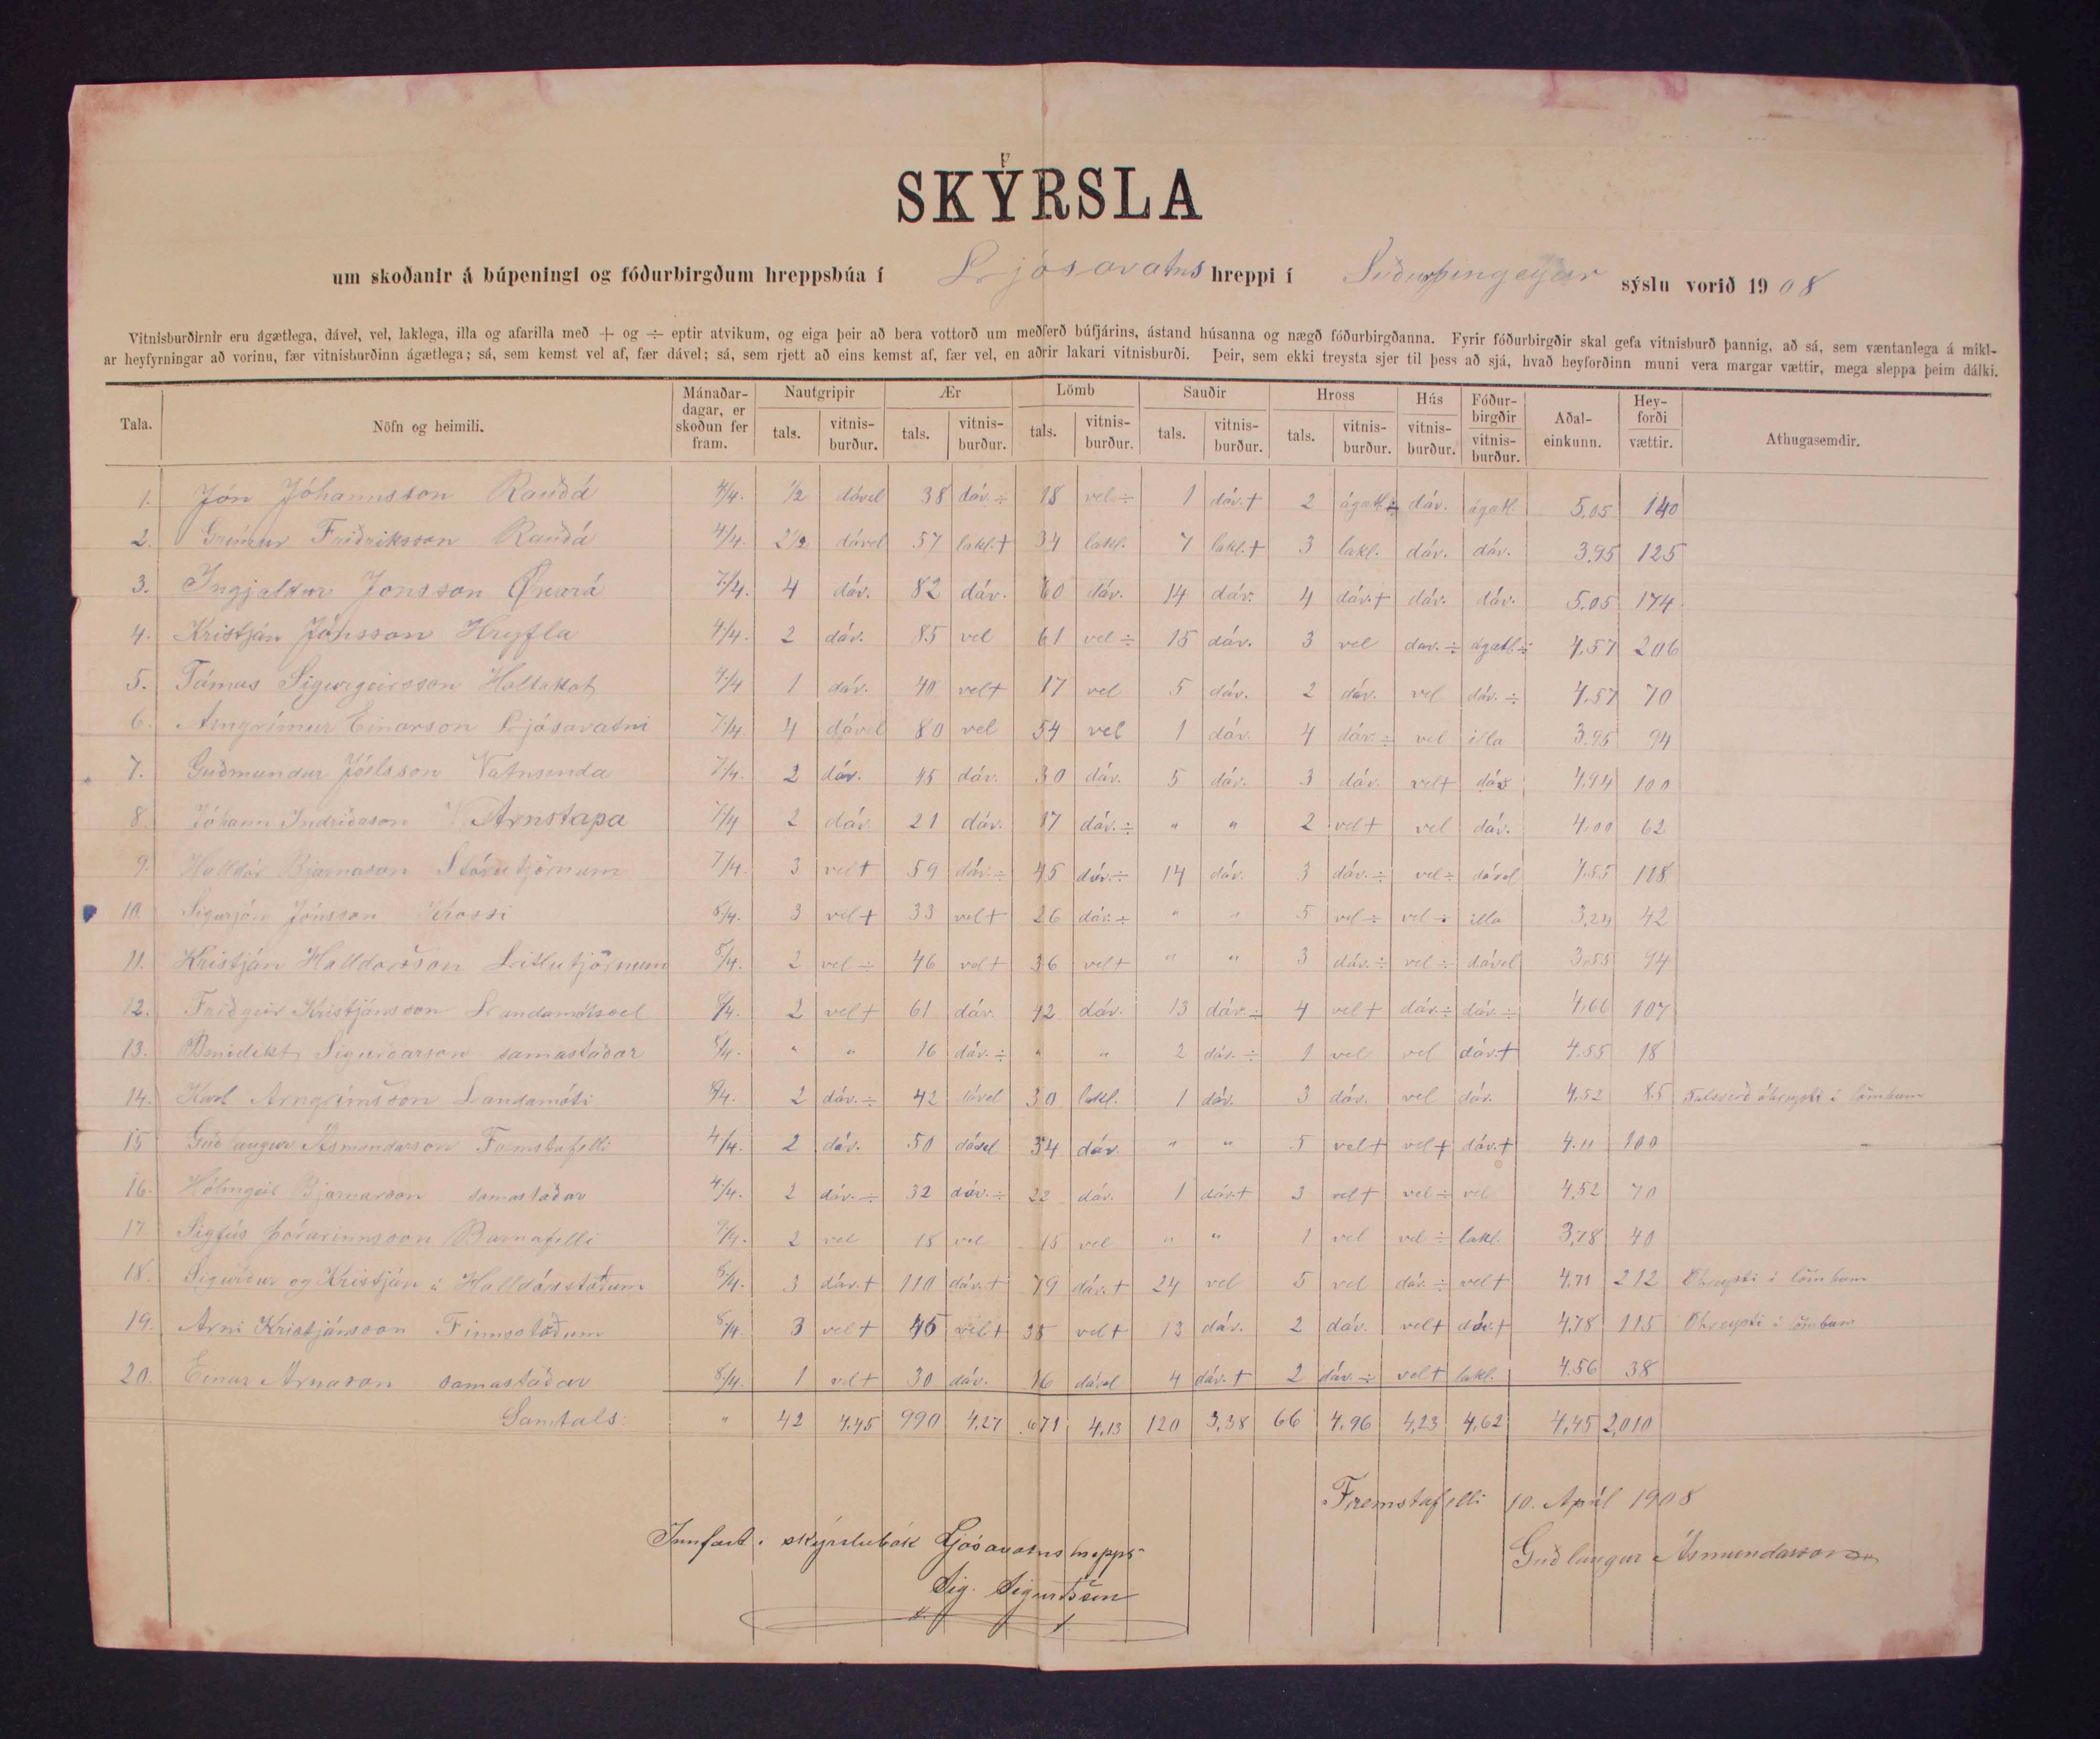 SKÝRSLA
um skoðanir á búpeningi og fóðurbirgðum hreppsbúa í Ljósavatns hreppi í Suðurþingeyjar sýslu vorið 1908
Vitnisburðirnir eru ágætlega, dável, vel, laklega, illa og afarilla með + og ÷ eptir atvikum, og eiga þeir að bera vottorð um meðferð búfjárins, ástand húsanna og nægð fóðurbirgðanna. Fyrir fóðurbirgðir skal gefa vitnisburð þannig, að sá, sem væntanlega á mikl-
ar heyfyrningar að vorinu, fær vitnisburðinn ágætlega; sá, sem kemst vel af, fær dável; sá, sem rjett að eins kemst af, fær vel, en aðrir lakari vitnisburði. Þeir, sem ekki treysta sjer til þess að sjá, hvað heyforðinn muni vera margar vættir, mega sleppa þeim dálki.
Tala. Nöfn og heimili. Mánaðardagar, er skoðun fer fram. Nautgripir tals. vitnisburður. Ær tals. vitnisburður. Lömb tals. vitnisburður. Sauðir tals. vitnisburður. Hross tals. vitnisburður. Hús vitnisburður. Fóðurbirgðir vitnisburður. Aðaleinkunn. Heyforði vættir. Athugasemdir.
1. Jón Jóhannsson Rauðá 4/4. 1/2 dável 38 dáv.÷ 18 vel÷ 1 dáv.+ 2 ágætl.÷ dáv. ágætl. 5,05 140
2. Grímur Friðriksson Rauðá 4/4. 2 1/2 dável 57 lakl.+ 34 lakl. 7 lakl.+ 3 lakl. dáv. dáv. 3,95 125
3. Ingjaldur Jonsson Öxará 7/4. 4 dáv. 82 dáv. 60 dáv. 14 dáv. 4 dáv.+ dáv. dáv. 5,05 174
4. Kristján Jónsson Hryfla 4/4. 2 dáv. 85 vel 61 vel÷ 15 dáv. 3 vel dav.÷ ágætl.÷ 4,57 206
5. Tómas Sigurgeirsson Holtakot 4/4 1 dáv. 40 vel+ 17 vel 5 dáv. 2 dáv. vel dáv.÷ 4,57 70
6. Arngrímur Einarson Ljósavatni 7/4 4 dável 80 vel 54 vel 1 dáv. 4 dáv.÷ vel illa 3.95 94
7. Guðmundur Jóelsson Vatnsenda 7/4. 2 dáv. 45 dáv. 30 dáv. 5 dáv. 3 dáv. vel+ dáv 4,94 100
8. Jóhann Indriðason Arnstapa 7/4 2 dáv. 21 dáv. 17 dáv.÷ " " 2 vel+ vel dáv. 4,00 62
9. Halldór Bjarnason Stórutjörnum 7/4. 3 vel+ 59 dáv.÷ 45 dáv.÷ 14 dáv. 3 dáv.÷ vel÷ dável 4,55 118
10. Sigurjón Jónsson Krossi 8/4. 3 vel+ 33 vel+ 26 dáv.÷ " " 5 vel÷ vel÷ illa 3,24 42
11. Kristján Halldorsson Litlutjörnum 8/4. 2 vel÷ 46 vel+ 36 vel+ " " 3 dáv.÷ vel÷ dável 3,55 94
12. Friðgeir Kristjánsson Landamótssel 8/4. 2 vel+ 61 dáv. 42 dáv. 13 dáv.÷ 4 vel+ dáv.÷ dáv.÷ 4,66 107
13. Benidikt Sigurðarson samastaðar 8/4. " " 16 dáv.÷ " " 2 dáv.÷ 1 vel vel dáv.+ 4.55 18
14. Karl Arngrímsson Landamóti 9/4. 2 dáv.÷ 42 dável 30 lakl. 1 dáv. 3 dáv. vel dáv. 4,52 85 Talsverð óhreysti í lömbum
15 Guðlaugur Ásmundarson Fremstafelli 4/4. 2 dáv. 50 dável 34 dáv. " " 5 vel+ vel+ dáv.+ 4.11 100
16. Hólmgeir Bjarnarson samastaðar 4/4. 2 dáv.÷ 32 dáv.÷ 22 dáv. 1 dáv.+ 3 vel+ vel÷ vel 4,52 70
17 Sigfús Þórarinnsson Barnafelli 9/4. 2 vel 18 vel 15 vel " " 1 vel vel÷ lakl. 3,78 40
18. Sigurður og Kristján á Halldórsstöðum 8/4. 3 dáv.+ 110 dáv.+ 79 dáv.+ 24 vel 5 vel dáv.÷ vel+ 4,71 212 Óhreysti í lömbum
19. Arni Kristjánsson Finnsstöðum 8/4. 3 vel+ 45 vel+ 35 vel+ 13 dáv. 2 dáv. vel+ dáv.+ 4,78 115 Óhreysti í lömbum
20. Einar Árnason samastaðar 8/4. 1 vel+ 30 dáv. 16 dável 4 dáv.+ 2 dáv.÷ vel+ lakl. 4.56 38
Samtals: " 42 4,45 990 4,27 671 4,13 120 3,38 66 4,96 4,23 4,62 4,45 2,010
Fremstafelli 10. Apríl 1908
Guðlaugur Ásmundarson
Innfært í skýrslubók Ljósavatnshrepps
Sig. Sigurðsson